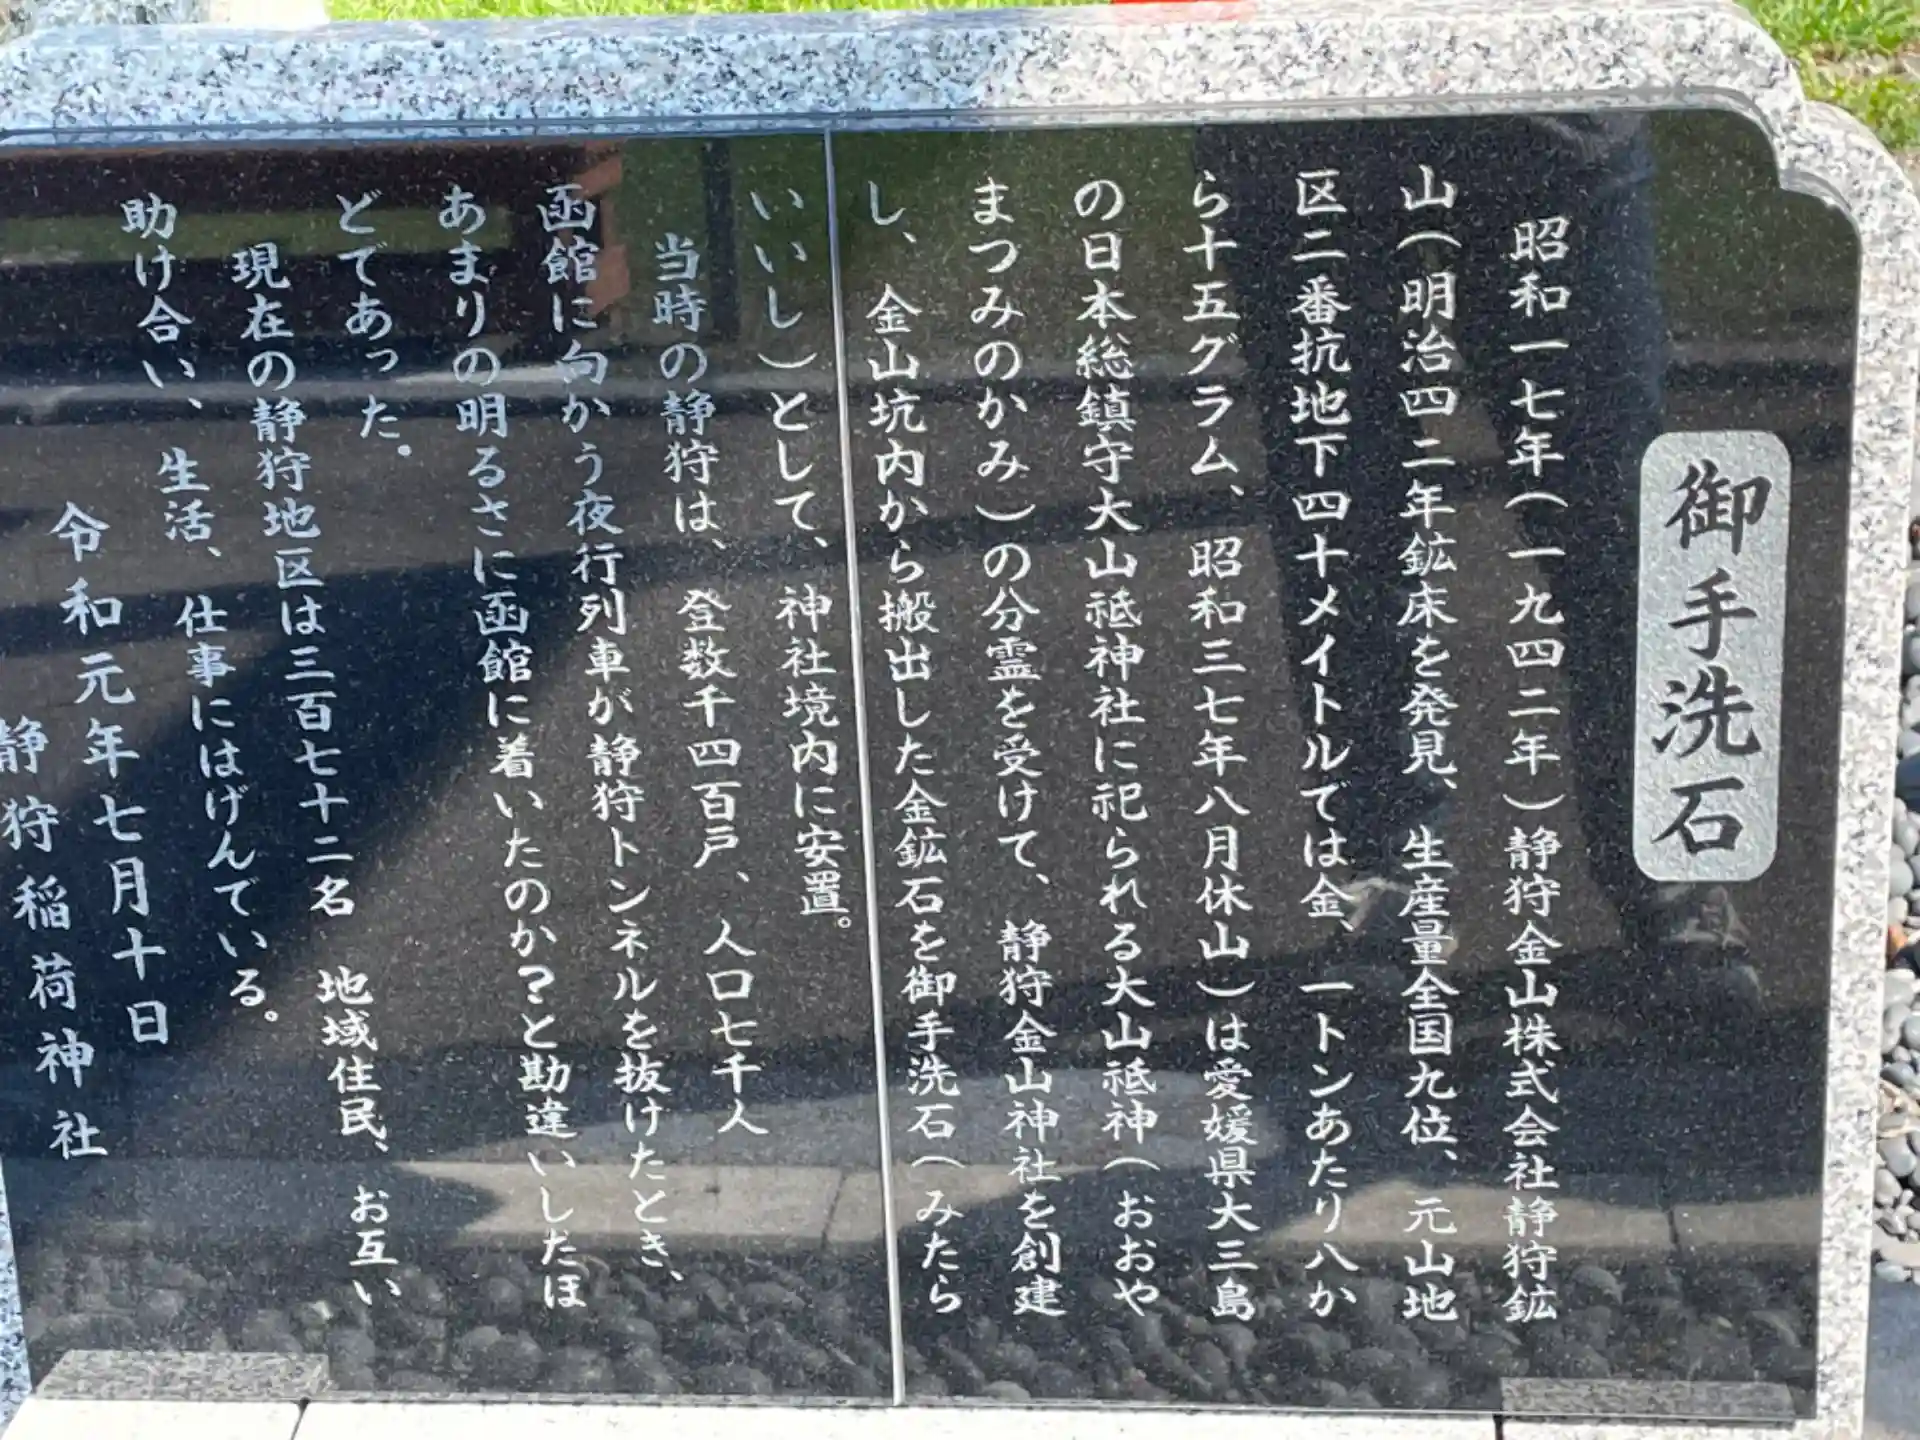 御手洗石
昭和一七年(一九四二年)静狩金山株式会社静狩鉱
山(明治四二年鉱床を発見、生産量全国九位、元山地
区二番抗地下四十メイトルでは金、一トンあたり八か
ら十五グラム、昭和三七年八月休山)は愛媛県大三島
の日本総鎮守大山祗神社に祀られる大山祗神(おおや
まつみのかみ)の分霊を受けて、静狩金山神社を創建
し、金山坑内から搬出した金鉱石を御手洗石(みたら
いいし)として、神社境内に安置。
当時の静狩は、登数千四百戸、人口七千人
函館に向かう夜行列車が静狩トンネルを抜けたとき、
あまりの明るさに函館に着いたのか?と勘違いしたほ
どであった。
現在の静狩地区は三百七十二名 地域住民、お互い
助け合い、生活、仕事にはげんでいる。
令和元年七月十日
静狩稲荷神社